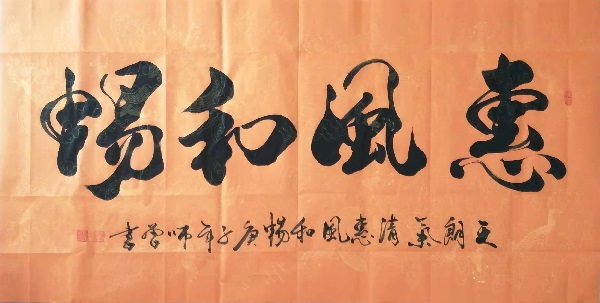 惠風和暢
天朗氣清惠風和暢庚子年師曾書